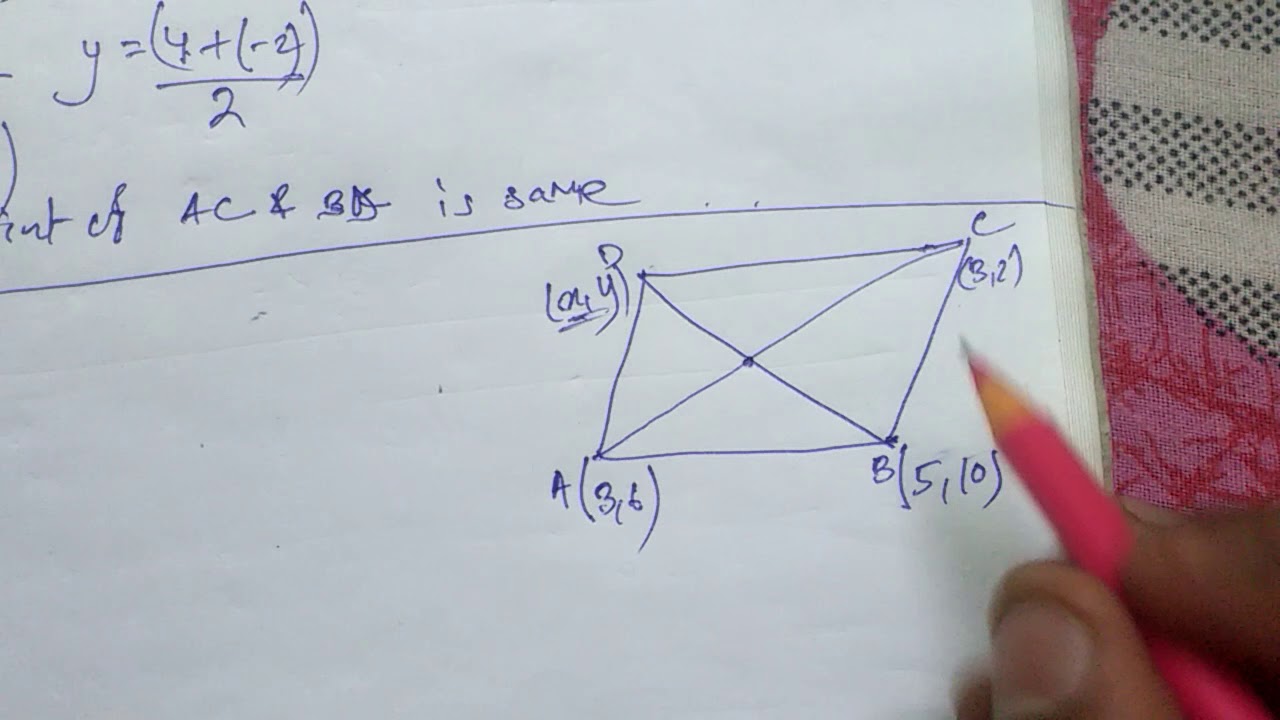 y = (4+(-2))
2
)
int of AC & BD is same
D
C
(x,y)
(3,2)
A (3,6)
B (5,10)